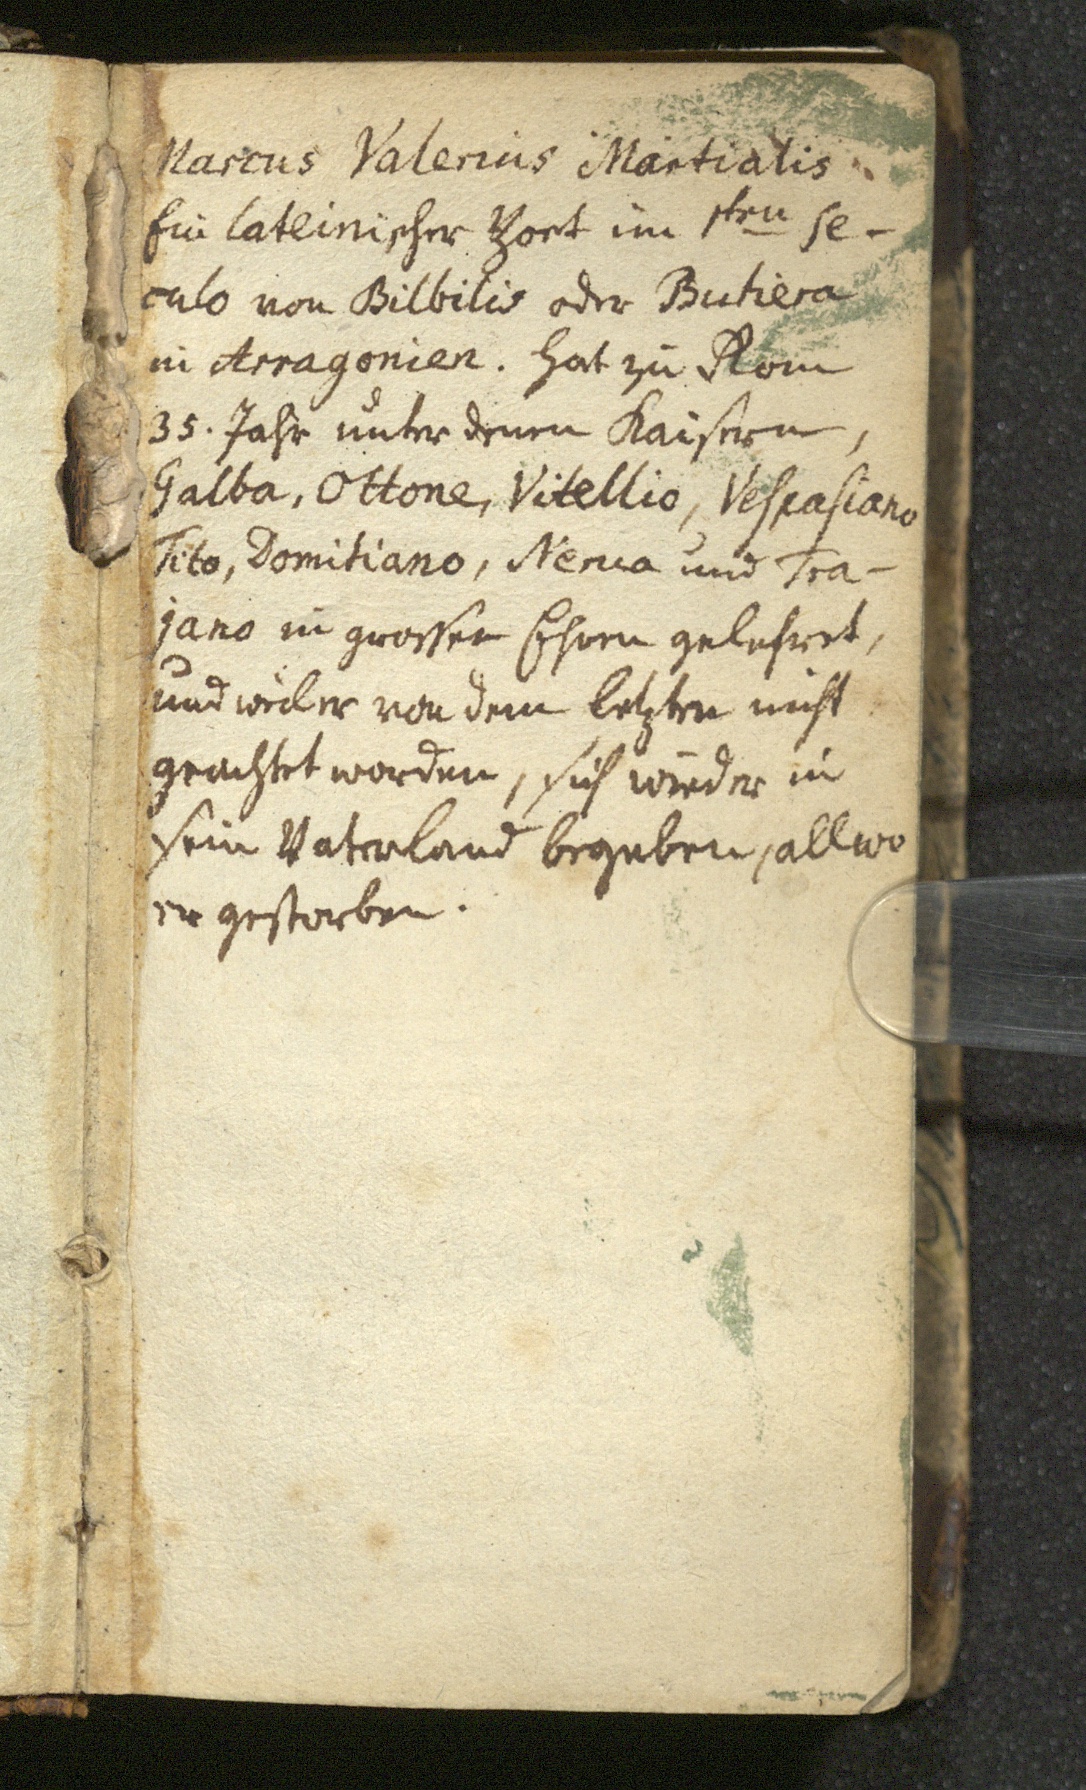 Marcus Valerius Martialis
Ein lateinischer Poet im 1sten Se-
culo von Bilbilis oder Butiera
in Arragonien. hat zu Rom
35. Jahr unter denen Kaisern,
Galba, Ottone, Vitellio, Vespasiano
Tito, Domitiano, Nerva und Tra-
jano in grossen Ehren gelehret,
und weil er von dem letzten nicht
geachtet worden, sich wieder in
sein Vaterland begeben, allwo
er gestorben.